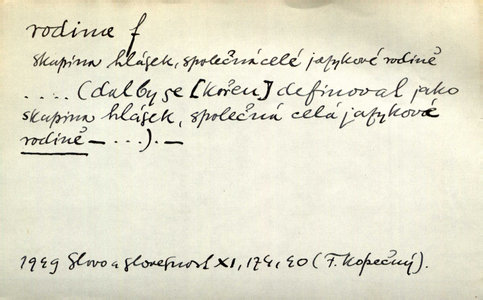 rodina f
skupina hlásek, společná celé jazykové rodině
.... (dal by se [kořen] definoval jako
skupina hlásek, společná celé jazykové
rodině — ...). —
1949 Slovo a slovesnost XI, 174, 40 (F. Kopečný).